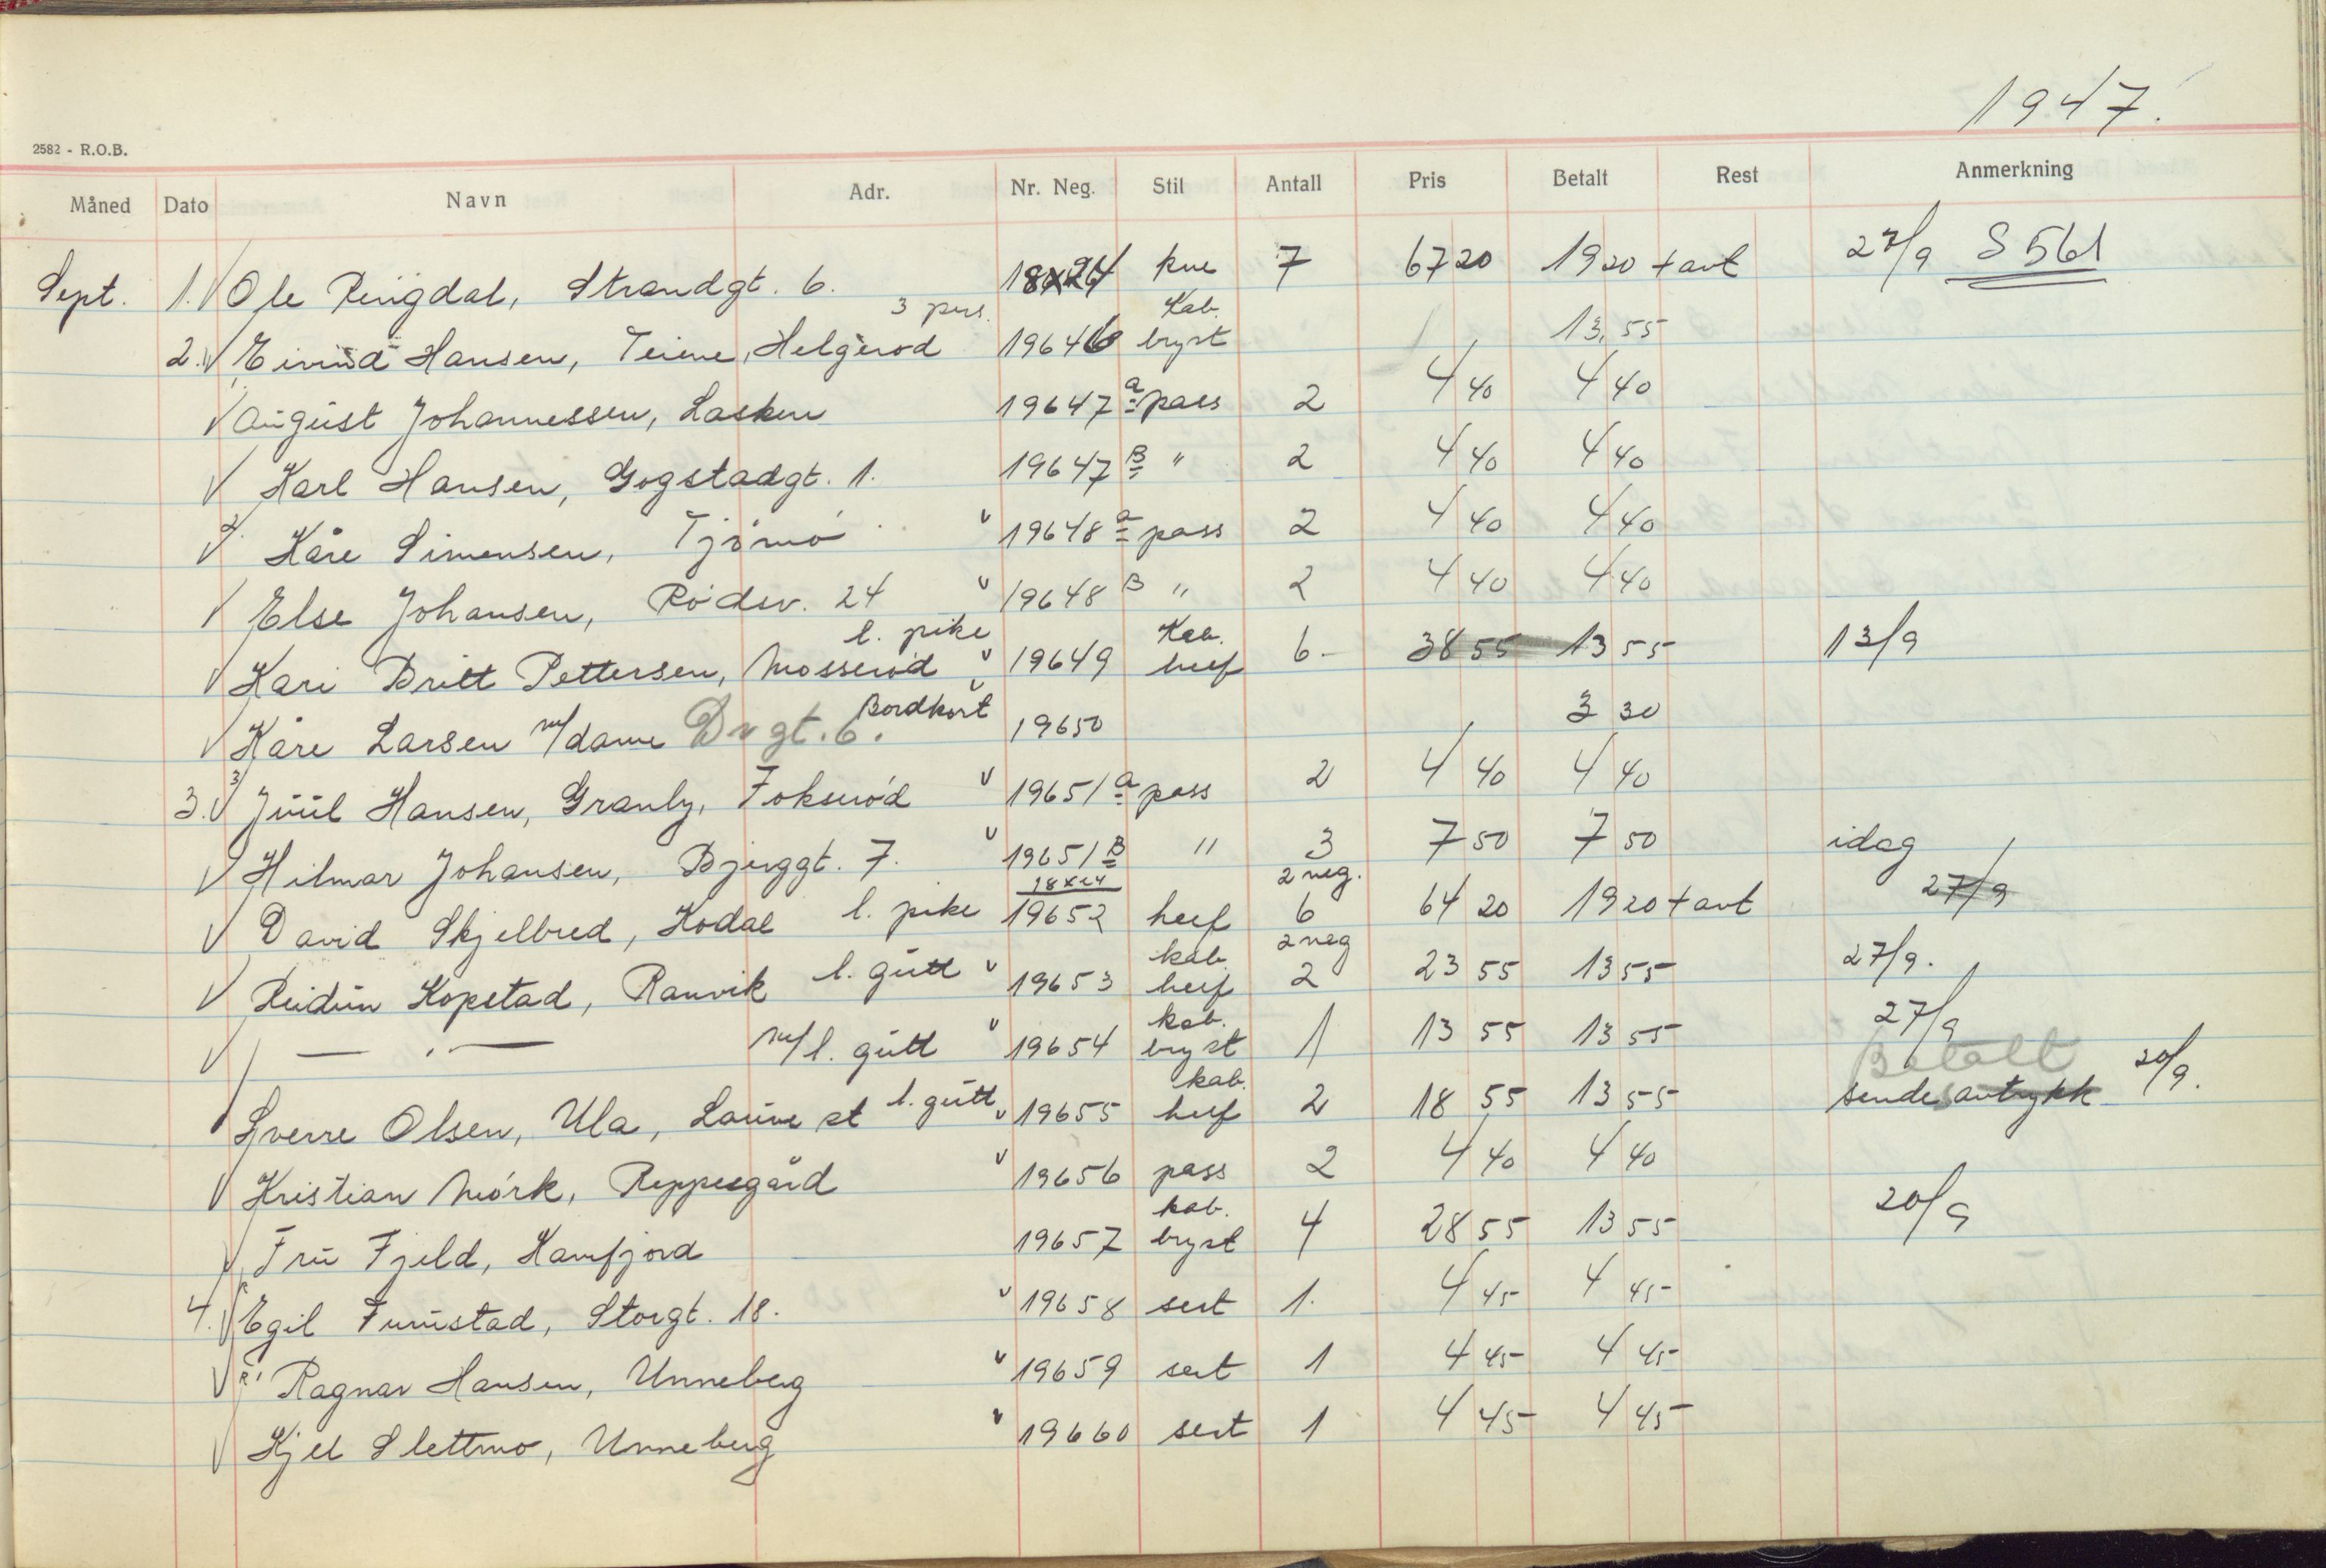 1947.
2582 - R.O.B.
Måned Dato Navn Adr. Nr. Neg. Stil Antall Pris Betalt Rest Anmerkning
Sept. 1. Ole Ringdal, Strandgt. 6. 18x24 kne 7 67 20 19 20 + avt 27/9 S 561
3 pers. Kab.
2. Eivind Hansen, Teiene, Helgerød 19646 bryst 13,55
August Johannessen, Lasken 19647 a pass 2 4 40 4 40
Karl Hansen, Gogstadgt. 1. 19647 B " 2 4 40 4 40
Kåre Simensen, Tjømø 19648 a pass 2 4 40 4 40
Else Johansen, Rødsv. 24 19648 B " 2 4 40 4 40
l. pike Kab.
Kari Britt Pettersen, Mosserød 19649 heef 6 - 38 55 13 55 13/9
Bordkort
Kåre Larsen m/dame Drgt. 6. 19650 3 30
3. Juul Hansen, Granly, Fokserød 19651 a pass 2 4 40 4 40
Hilmar Johansen, Bjerggt. 7. 19651 B " 3 7 50 7 50 idag
18x24 2 neg.
David Skjelbred, Kodal l. pike 19652 heef 6 64 20 19 20 + avt 27/9
kab. 2 neg
Reidun Kopstad, Ranvik l. gutt 19653 heef 2 23 55 13 55 27/9.
kab.
— " — m/l. gutt 19654 bryst 1 13 55 13 55 27/9
Betalt
kab.
Sverre Olsen, Ula, Lauve st l. gutt 19655 heef 2 18 55 13 55 sendes avtrykk 20/9.
Kristian Mørk, Reppesgård 19656 pass 2 4 40 4 40
kab.
Fru Fjeld, Kamfjord 19657 bryst 4 28 55 13 55 20/9
4. Egil Furustad, Storgt. 18. 19658 sert 1. 4 45 4 45
Ragnar Hansen, Unneberg 19659 sert 1 4 45 4 45
Kjell Slettmo, Unneberg 19660 sert 1 4 45 4 45